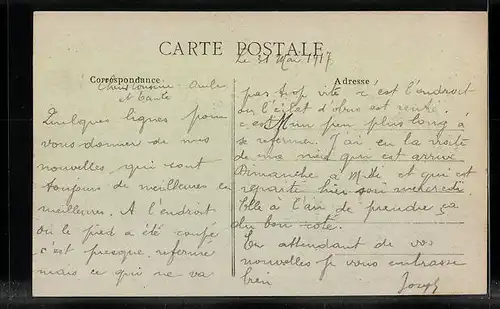 CARTE POSTALE
Le 31 Mai 1917
Correspondance
Adresse
et tante
Quelques lignes pour
vous donner de mes
nouvelles, qui sont
toujours de meilleures en
meilleures. A l'endroit
où le pied a été coupé
c'est presque refermé
mais ce qui ne va
pas trop vite c'est l'endroit
ou l'éclat d'obus est rentré
c'est un peu plus long à
se refermer. J'ai eu la visite
de ma qui est arrivé
Dimanche à Midi et qui est
repartie hier soir mercredi.
Elle a l'air de prendre ça
du bon coté.
En attendant de vos
nouvelles je vous embrasse
bien
Joseph